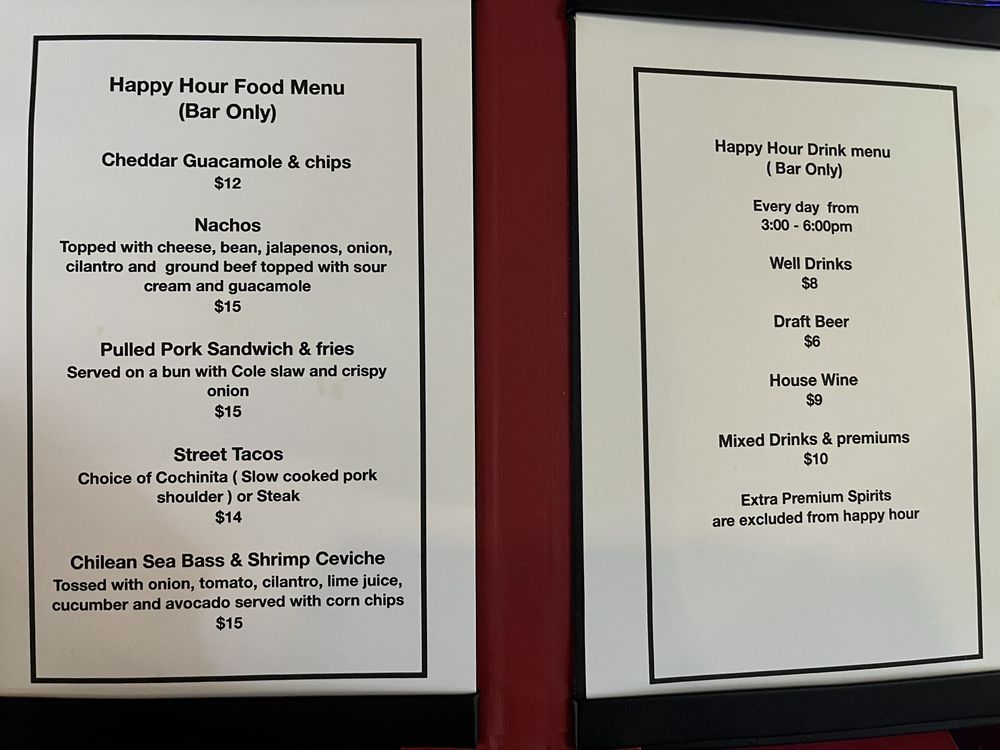 Happy Hour Food Menu
(Bar Only)
Cheddar Guacamole & chips
$12
Nachos
Topped with cheese, bean, jalapenos, onion,
cilantro and ground beef topped with sour
cream and guacamole
$15
Pulled Pork Sandwich & fries
Served on a bun with Cole slaw and crispy
onion
$15
Street Tacos
Choice of Cochinita ( Slow cooked pork
shoulder ) or Steak
$14
Chilean Sea Bass & Shrimp Ceviche
Tossed with onion, tomato, cilantro, lime juice,
cucumber and avocado served with corn chips
$15
Happy Hour Drink menu
( Bar Only)
Every day from
3:00 - 6:00pm
Well Drinks
$8
Draft Beer
$6
House Wine
$9
Mixed Drinks & premiums
$10
Extra Premium Spirits
are excluded from happy hour